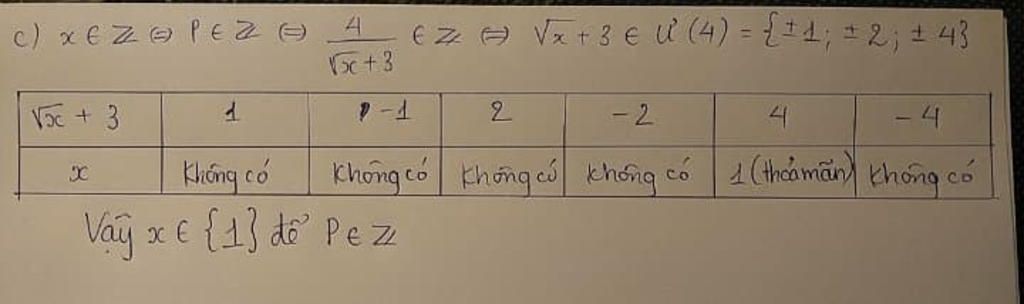 c) x ∈ ℤ ⇔ P ∈ ℤ ⇔ 4/(√x + 3) ∈ ℤ ⇔ √x + 3 ∈ Ư(4) = {±1; ±2; ±4}
√x + 3 1 -1 2 -2 4 -4
x Không có Không có Không có Không có 1 (thỏa mãn) Không có
Vậy x ∈ {1} để P ∈ ℤ